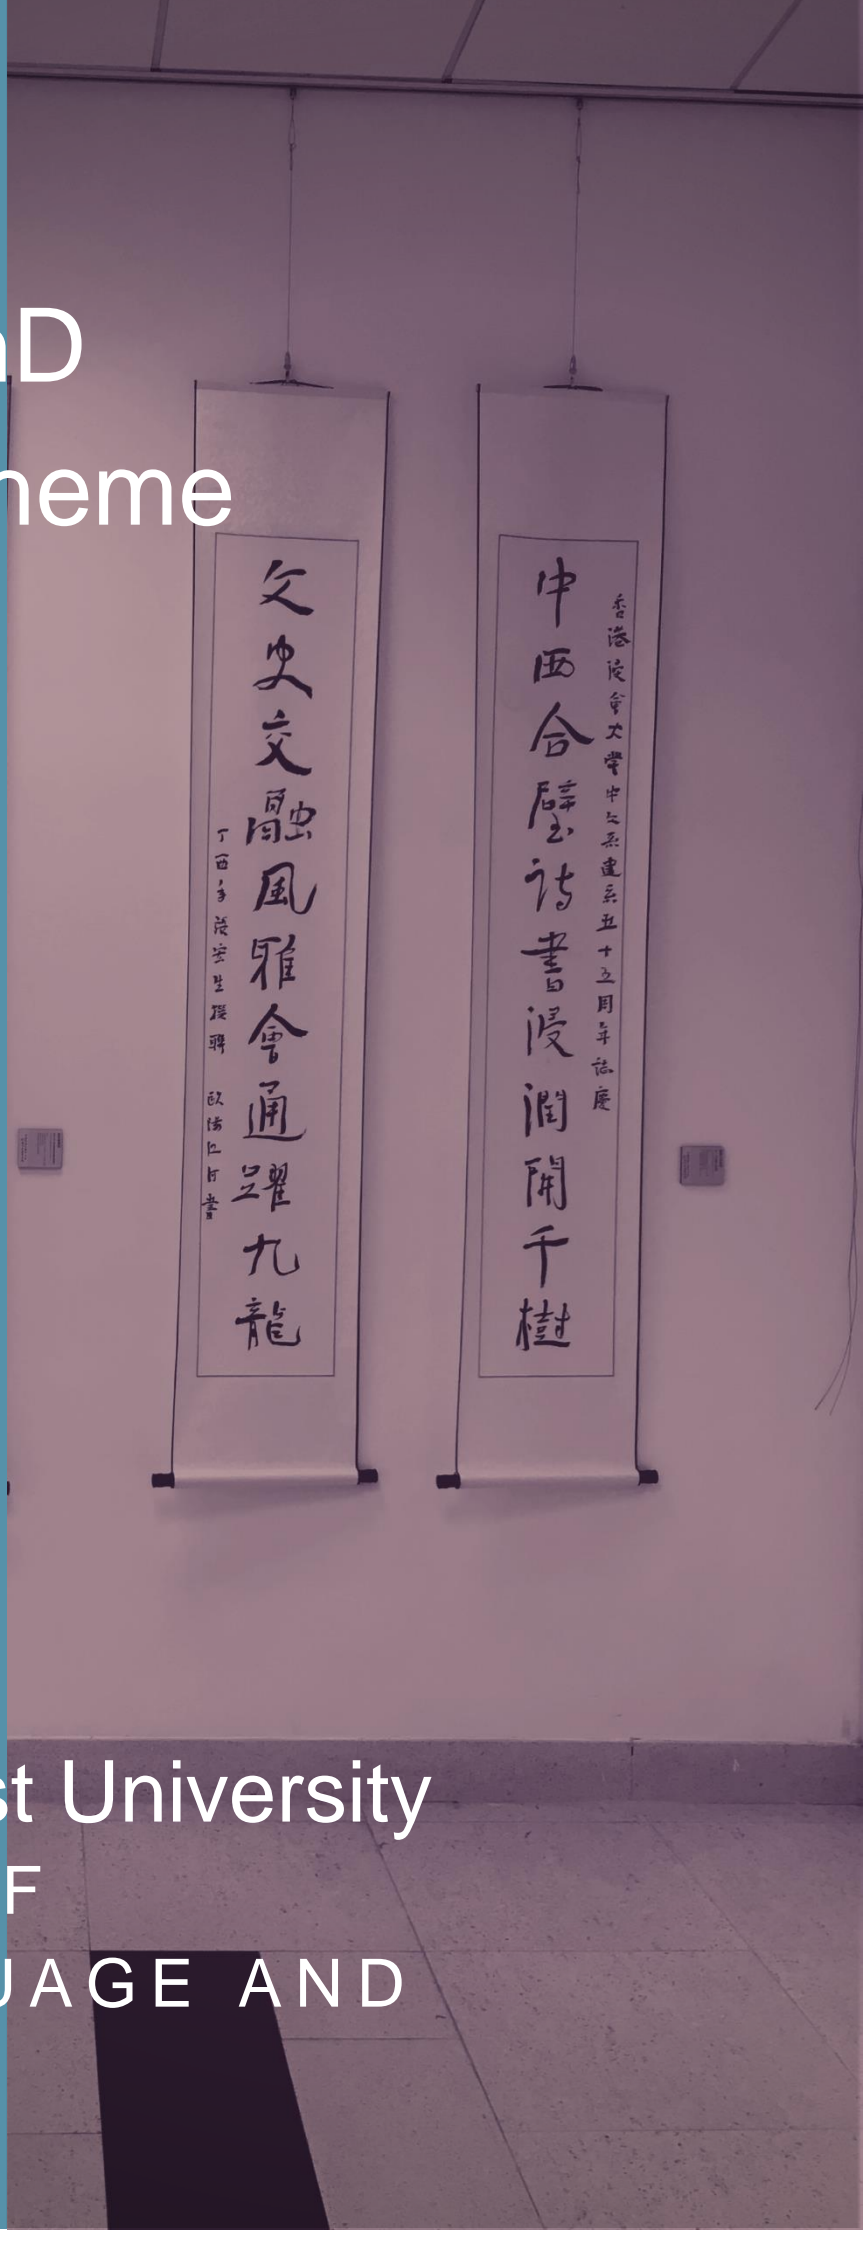 hD
heme
香港浸會大學中文系建系五十五周年誌慶
中西合璧詩書浸潤開千樹
文史交融風雅會通躍九龍
丁酉年張宏生撰聯 歐陽江河書
st University
F
UAGE AND